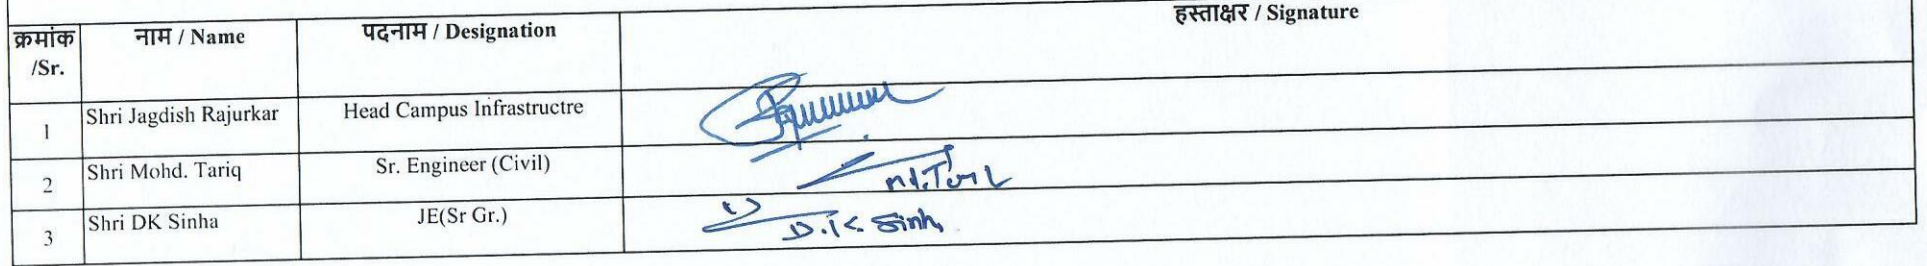 क्रमांक /Sr. नाम / Name पदनाम / Designation हस्ताक्षर / Signature
1 Shri Jagdish Rajurkar Head Campus Infrastructre
2 Shri Mohd. Tariq Sr. Engineer (Civil)
3 Shri DK Sinha JE(Sr Gr.) D.K. Sinh